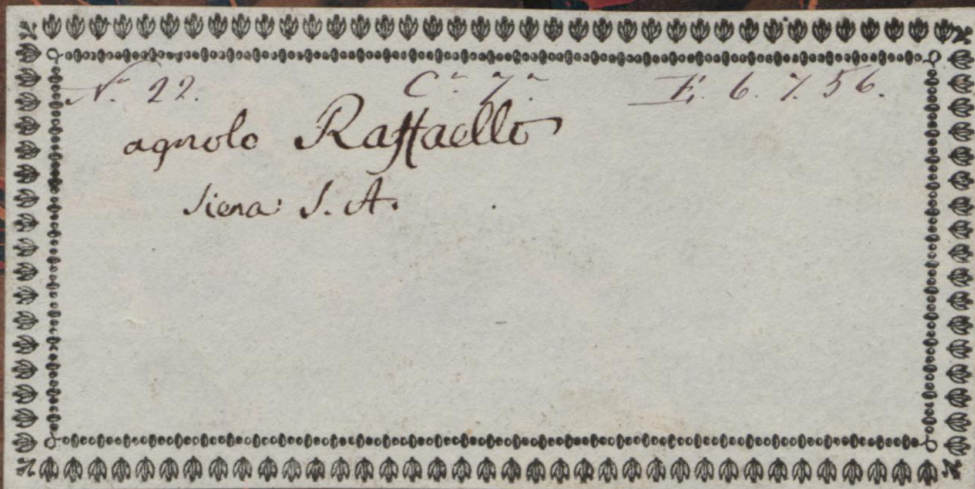 N. 22. C.a 7.a E. 6. 7. 56.
agnolo Raffaello
Siena S. A.